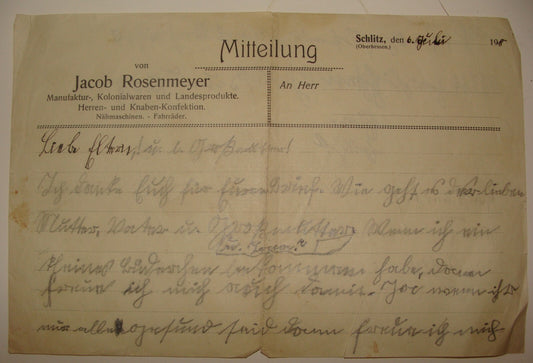 Mitteilung
Schlitz, den 6. Juli 190
(Oberhessen.)
von
Jacob Rosenmeyer
Manufaktur-, Kolonialwaren und Landesprodukte.
Herren- und Knaben-Konfektion.
Nähmaschinen. - Fahrräder.
An Herr
Liebe Eltern, u. l. Großmutter!
Ich danke Euch für Euren Brief. Wie geht es der lieben
Mutter, Vater u. Großmutter. Wenn ich ein
kleines Brüderchen bekommen habe, dann
freue ich mich auch damit. wenn ihr
nur alle gesund seid dann freue ich mich